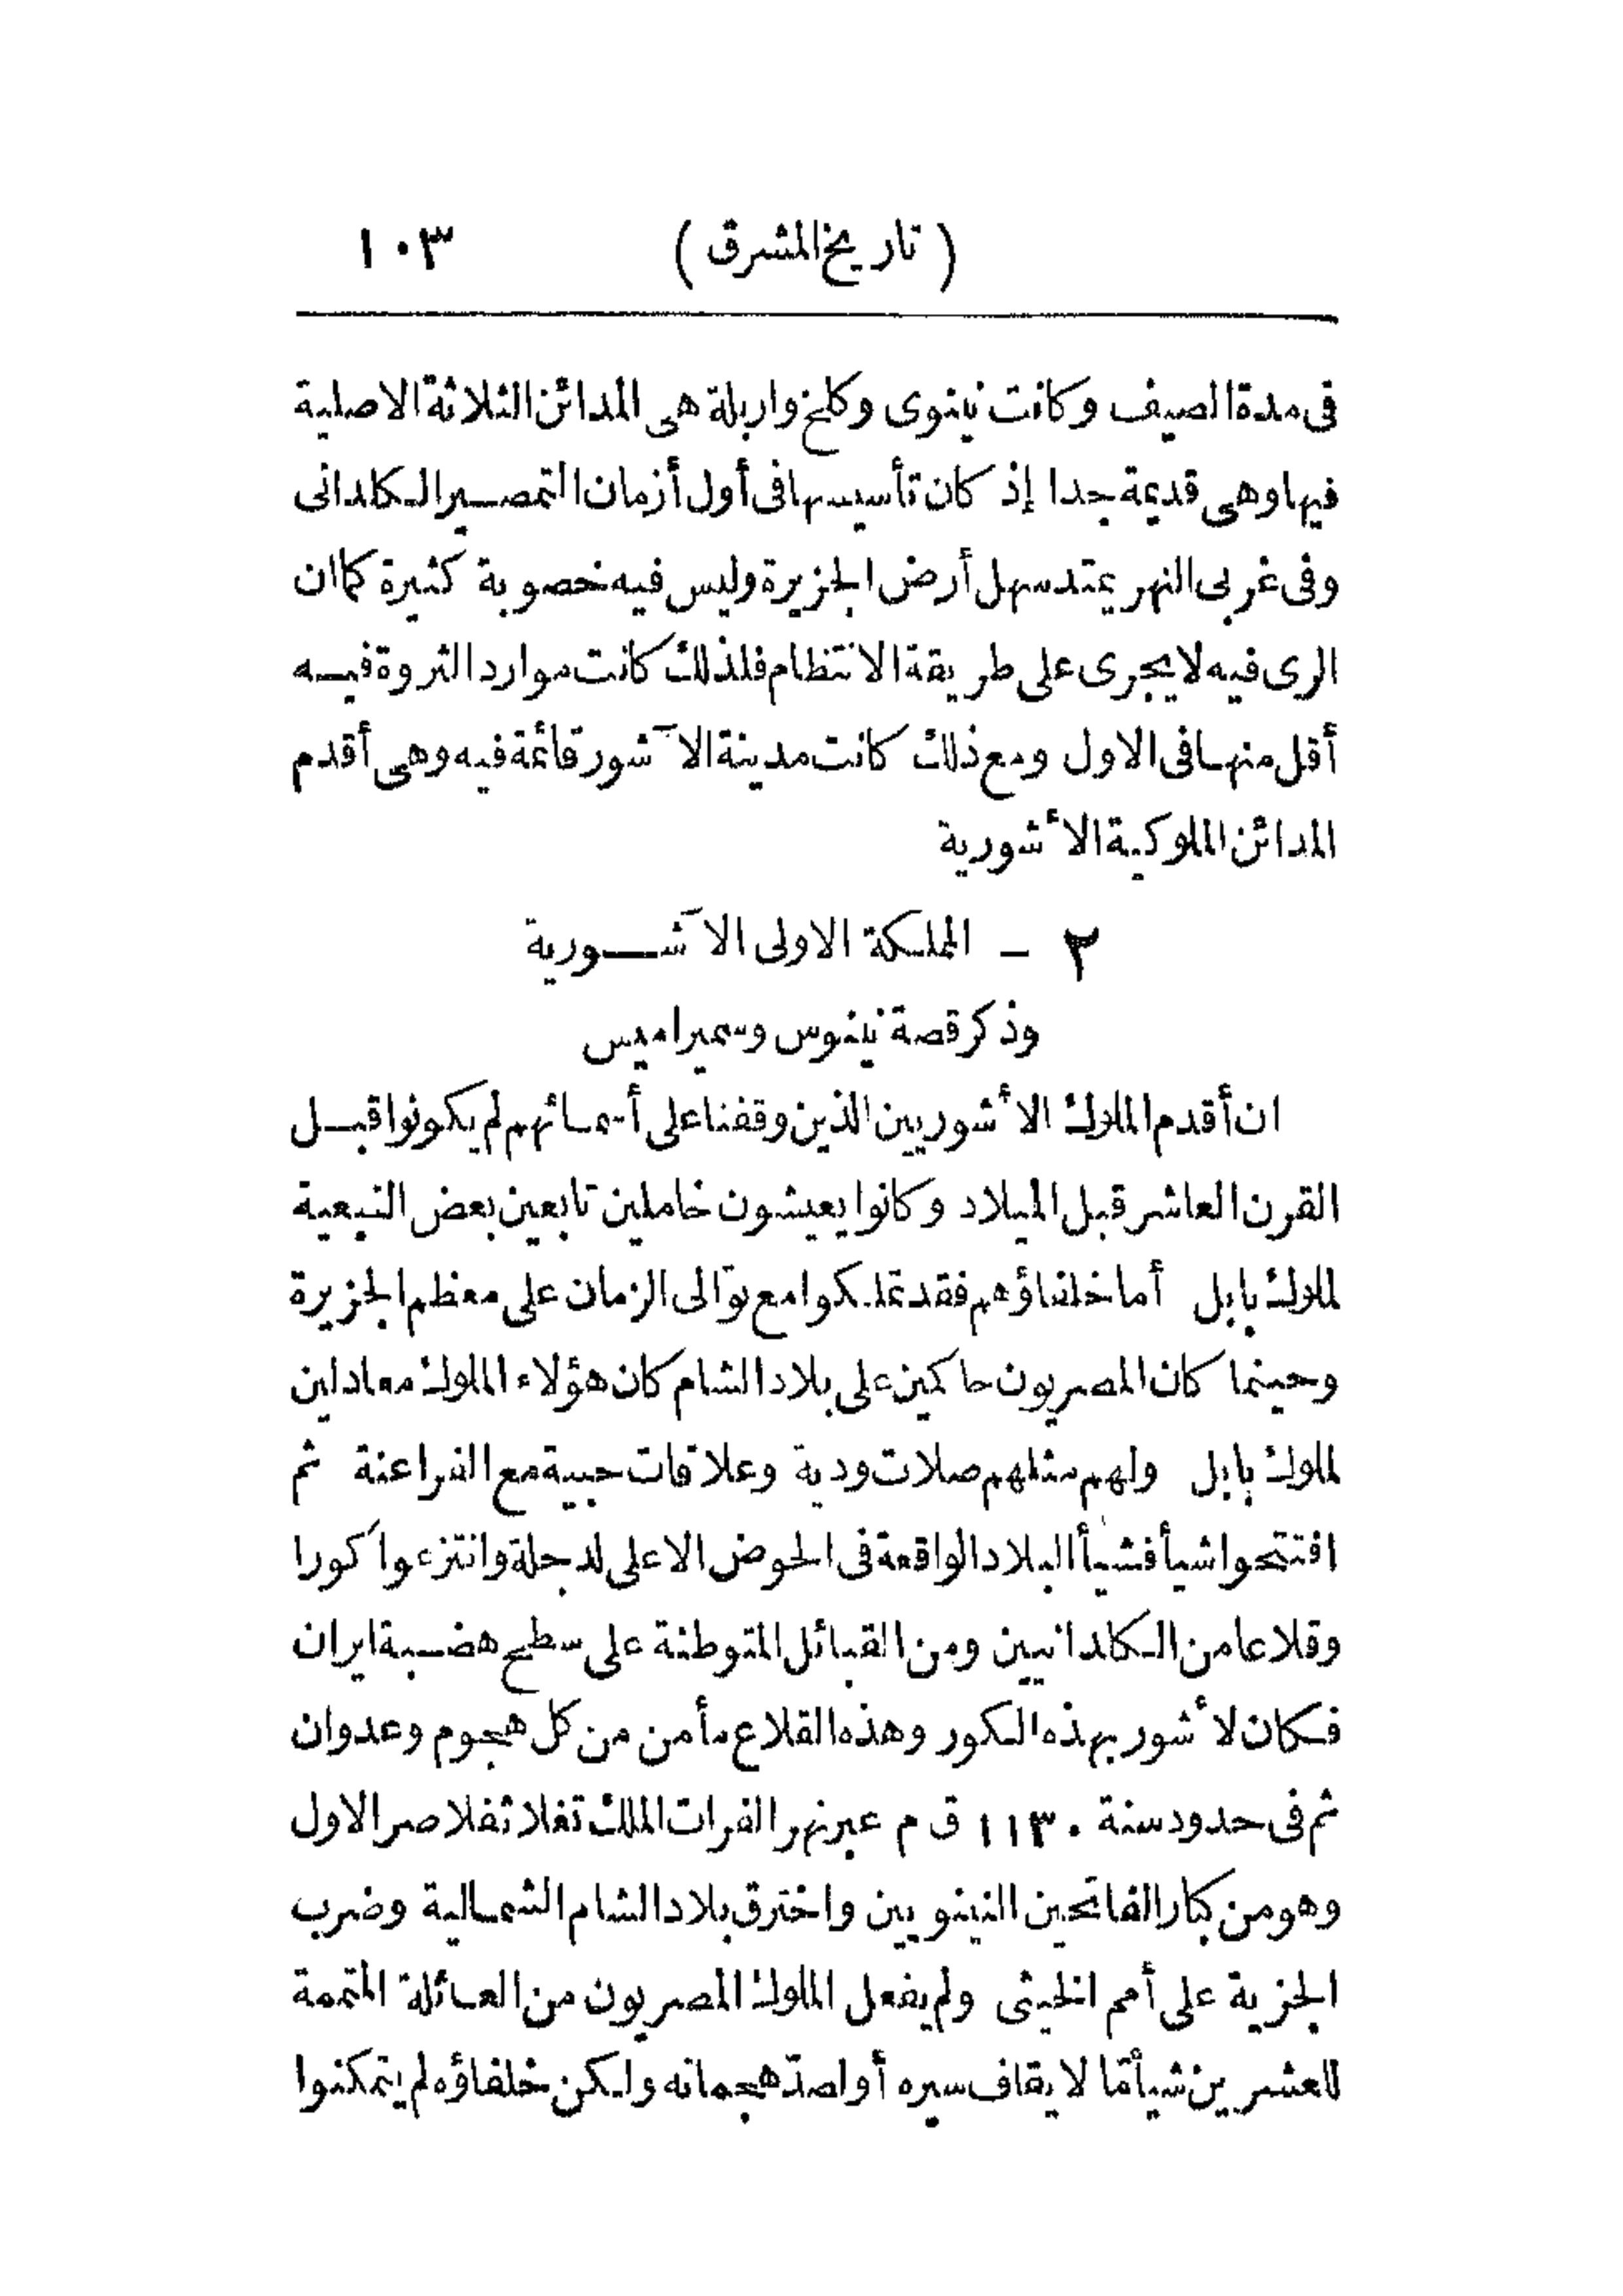 (تاريخ المشرق) ١٠٣
فى مدة الصيف وكانت نينوى وكلخ واربلة هى المدائن الثلاثة الاصلية
فيها وهى قديمة جدا إذ كان تأسيسها فى أول أزمان التمصير الكلدانى
وفى غربى النهر يمتد سهل أرض الجزيرة وليس فيه خصوبة كثيرة كما ان
الرى فيه لا يجرى على طريقة الانتظام فلذلك كانت موارد الثروة فيه
أقل منها فى الاول ومع ذلك كانت مدينة الآشور قائمة فيه وهى أقدم
المدائن الملوكية الأشورية
٢ - المملكة الاولى الآشورية
وذكر قصة نينوس وسميراميس
ان أقدم الملوك الأشوريين الذين وقفنا على أسمائهم لم يكونوا قبل
القرن العاشر قبل الميلاد وكانوا يعيشون خاملين تابعين بعض التبعية
لملوك بابل أما خلفاؤهم فقد تملكوا مع توالى الزمان على معظم الجزيرة
وحينما كان المصريون حاكمين على بلاد الشام كان هؤلاء الملوك معادلين
لملوك بابل ولهم مثلهم صلات ودية وعلاقات حبية مع الفراعنة ثم
افتتحوا شيأ فشيأ البلاد الواقعة فى الحوض الاعلى لدجلة وانتزعوا كورا
وقلاعا من الكلدانيين ومن القبائل المتوطنة على سطح هضبة ايران
فكان لأشور بهذه الكور وهذه القلاع مأمن من كل هجوم وعدوان
ثم فى حدود سنة ١١٣٠ ق م عبر نهر الفرات الملك تغلاثفلاصر الاول
وهو من كبار الفاتحين النينويين واخترق بلاد الشام الشمالية وضرب
الجزية على أمم الخيثى ولم يفعل الملوك المصريون من العائلة المتممة
للعشرين شيأ مّا لايقاف سيره أو لصدّ هجماته ولكن خلفاؤه لم يتمكنوا